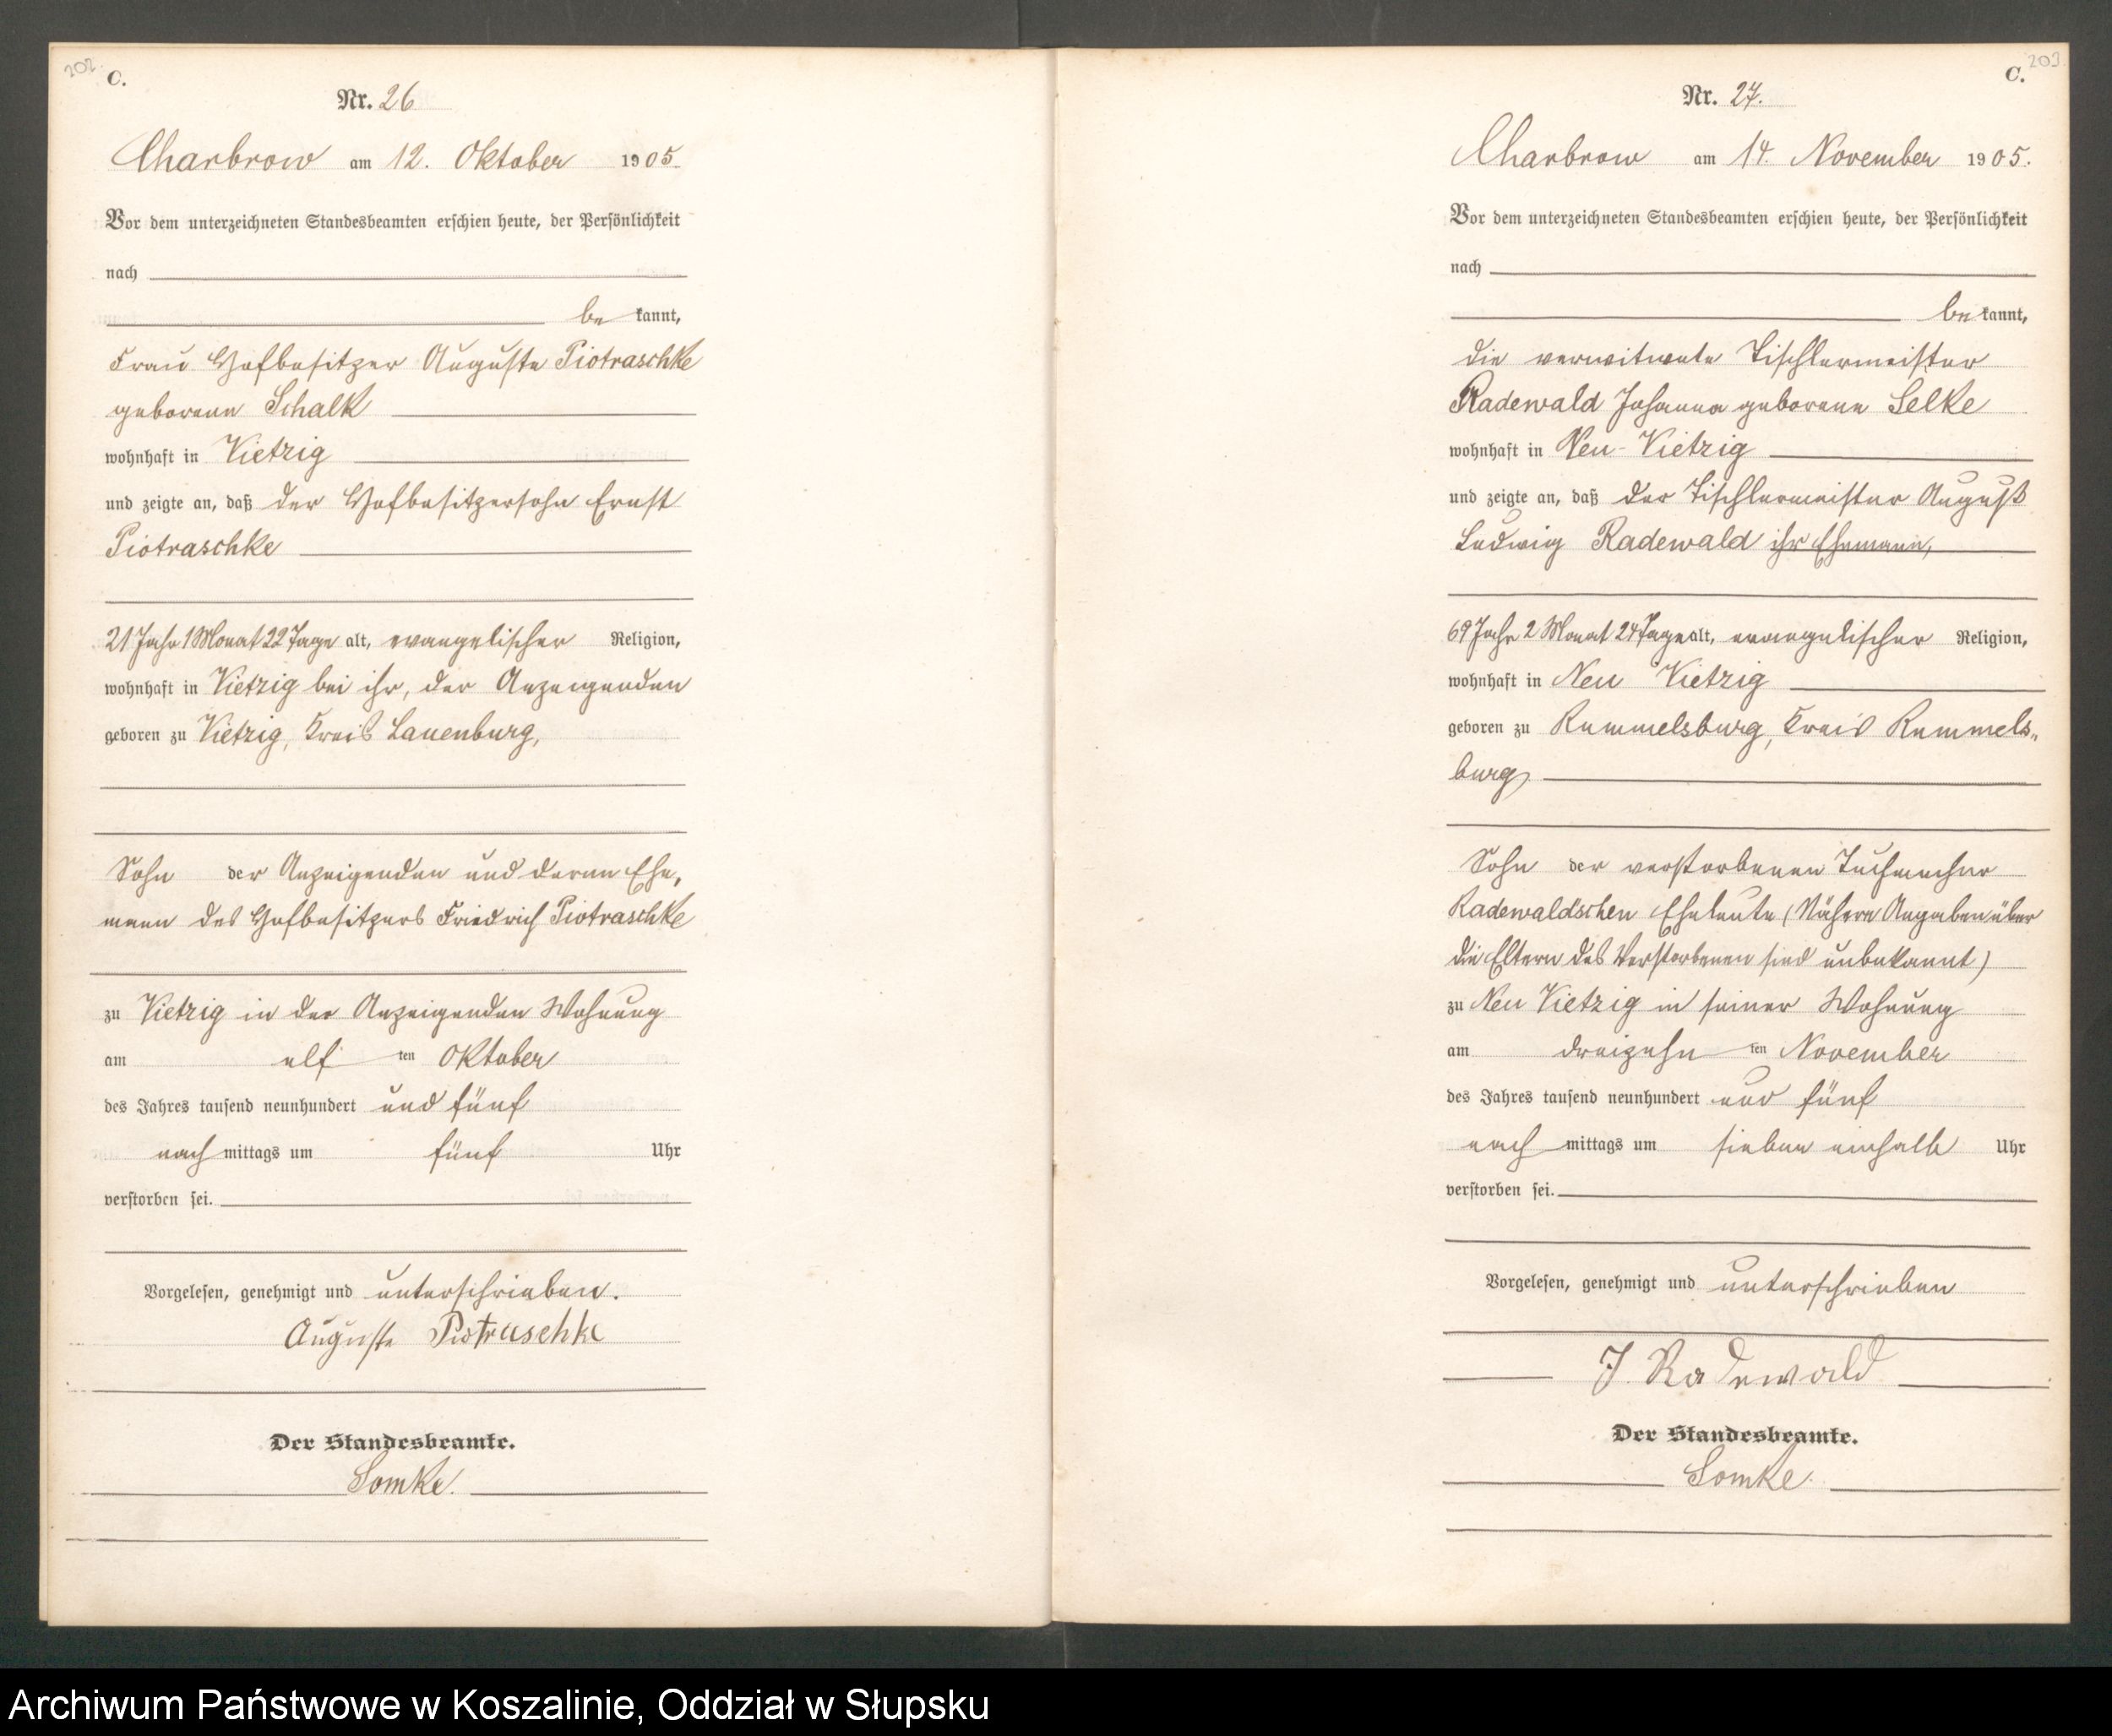 202.
C.
Nr. 26
Charbrow am 12. Oktober 1905.
Vor dem unterzeichneten Standesbeamten erschien heute, der Persönlichkeit
nach
be kannt,
Frau Hofbesitzer Auguste Piotraschke
geborene Schalk
wohnhaft in Vietzig
und zeigte an, daß der Hofbesitzersohn Ernst
Piotraschke
21 Jahr 1 Monat 22 Tage alt, evangelischer Religion,
wohnhaft in Vietzig bei ihr, der Anzeigenden
geboren zu Vietzig, Kreis Lauenburg,
Sohn der Anzeigenden und deren Ehe,
mann des Hofbesitzers Friedrich Piotraschke
zu Vietzig in der Anzeigenden Wohnung
am elf ten Oktober
des Jahres tausend neunhundert und fünf
nach mittags um fünf Uhr
verstorben sei.
Vorgelesen, genehmigt und unterschrieben.
Auguste Piotraschke
Der Standesbeamte.
Somke.
203
C.
Nr. 27.
Charbrow am 14. November 1905.
Vor dem unterzeichneten Standesbeamten erschien heute, der Persönlichkeit
nach
be kannt,
die verwitwete Tischlermeister
Radewald Johanna geborene Selke
wohnhaft in Neu-Vietzig
und zeigte an, daß der Tischlermeister August
Ludwig Radewald ihr Ehemann,
69 Jahr 2 Monat 24 Tage alt, evangelischer Religion,
wohnhaft in Neu Vietzig
geboren zu Rummelsburg, Kreis Rummels„
burg,
Sohn der verstorbenen Tuchmacher
Radewald'schen Eheleute (Nähere Angaben über
die Eltern des Verstorbenen sind unbekannt)
zu Neu Vietzig in seiner Wohnung
am dreizehn ten November
des Jahres tausend neunhundert und fünf
nach mittags um sieben einhalb Uhr
verstorben sei.
Vorgelesen, genehmigt und unterschrieben
J. Radewald
Der Standesbeamte.
Somke.
Archiwum Państwowe w Koszalinie, Oddział w Słupsku